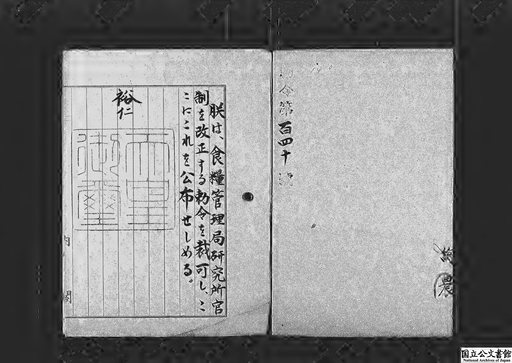 令第百四十號
農
朕は、食糧管理局研究所官
制を改正する勅令を裁可し、こ
こにこれを公布せしめる。
裕仁
天皇
御璽
内閣
国立公文書館
National Archives of Japan